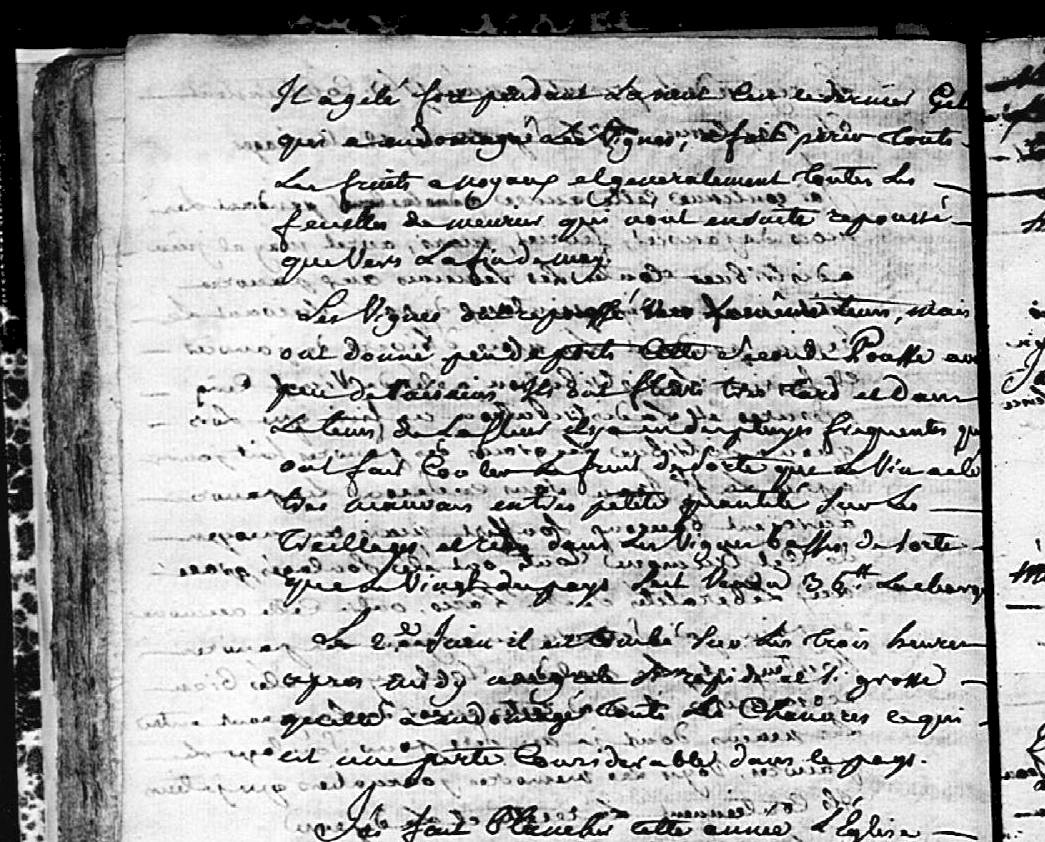 Il a gelé fort pendant la nuit du dernier
qui a endomagé les Vignes, a fait périr touts
Les fruits a noyaux et generalement toutes les
feuilles de meurier qui n'ont ensuite repoussé
que Vers La fin de may.
Les Vignes ont repoussé Vers mais
ont donné peu de cette seconde Pousse
peu de raisains, ils ont fleuri tres tard et dans
Le tems de La fleur il y a eu des pluyes frequentes qui
ont fait Couler Le fruit de sorte que le Vin a été
tres mauvais en tres petite quantité sur Les
treillages et dans Les Vignes basses, de sorte
que le Vin du pays s'est Vendu 36 ₶ La charge
Le 2 Juin il est tombé sur Les trois heures
apres midy une grele si rapide et si grosse
qu'elle a endomagé touts Les Chanvres ce qui
est une perte Considerable dans le pays.
J'ai fait Blanchir cette année L'Eglise